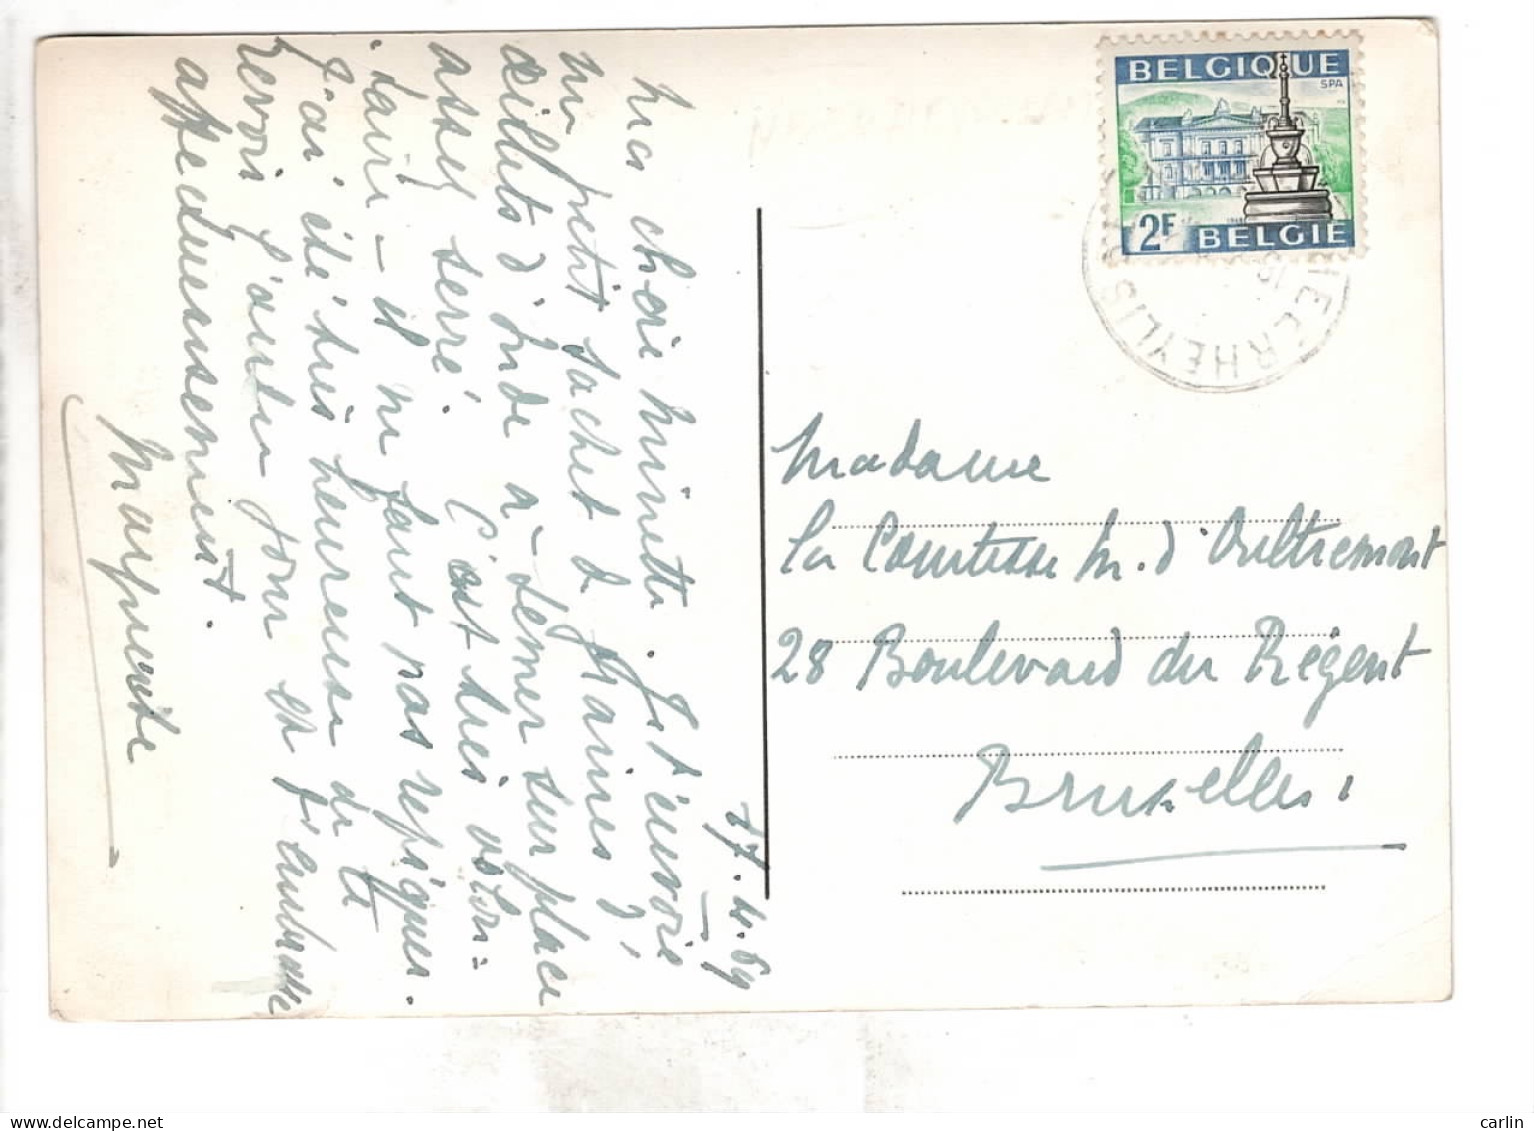 17.4.69
Ma chérie Minette. Je t'envoie
un petit sachet de graines d'
œillets d'Inde à semer sur place
assez serré. C'est très volon=
taire - il ne faut pas repiquer.
J'ai été très heureuse de te
revoir l'autre jour et t'embrasse
affectueusement.
Marguerite
BELGIQUE
SPA
2F
1968
BELGIE
HEERHEYLIS
Madame
La Comtesse M. d'Oultremont
28 Boulevard du Régent
Bruxelles.
carlin